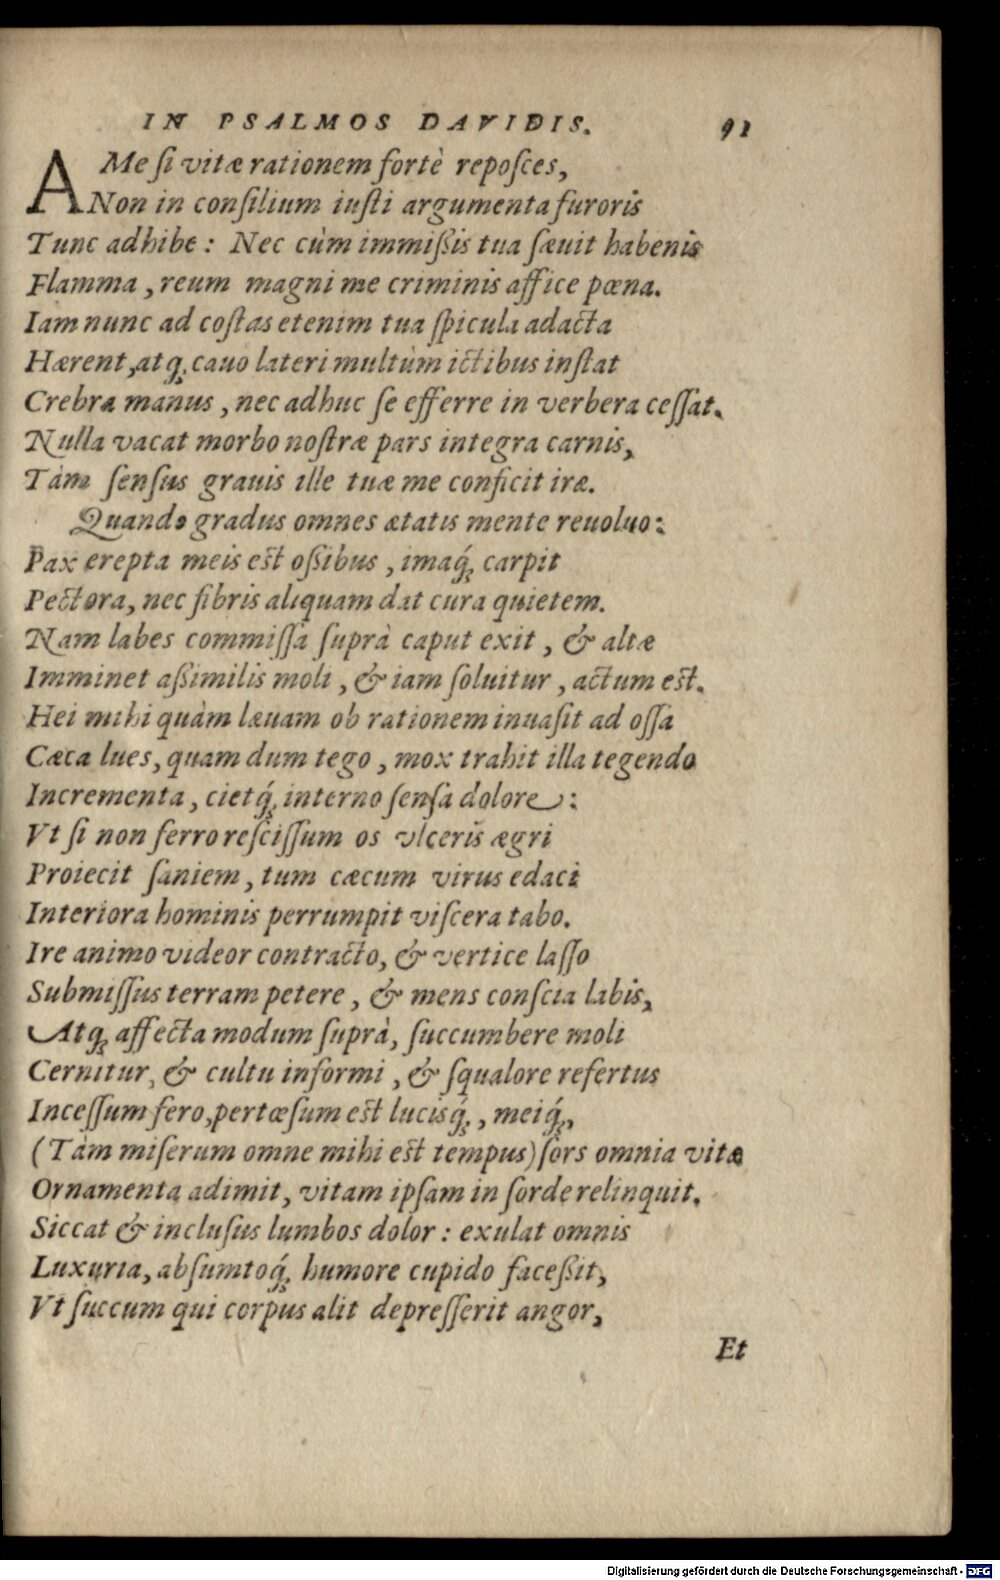 IN PSALMOS DAVIDIS. 91
A Me si vitæ rationem fortè reposces,
Non in consilium iusti argumenta furoris
Tunc adhibe : Nec cùm immißis tua sæuit habenis
Flamma, reum magni me criminis affice pœna.
Iam nunc ad costas etenim tua spicula adacta
Hærent, atq; cauo lateri multùm ictibus instat
Crebra manus, nec adhuc se efferre in verbera cessat.
Nulla vacat morbo nostræ pars integra carnis,
Tàm sensus grauis ille tuæ me conficit iræ.
Quando gradus omnes ætatis mente reuoluo:
Pax erepta meis est oßibus, imaq́; carpit
Pectora, nec fibris aliquam dat cura quietem.
Nam labes commissa suprà caput exit, & altæ
Imminet aßimilis moli, & iam soluitur, actum est.
Hei mihi quàm læuam ob rationem inuasit ad ossa
Cæca lues, quam dum tego, mox trahit illa tegendo
Incrementa, cietq́; interno sensa dolore:
Vt si non ferro rescissum os vlceris ægri
Proiecit saniem, tum cæcum virus edaci
Interiora hominis perrumpit viscera tabo.
Ire animo videor contracto, & vertice lasso
Submissus terram petere, & mens conscia labis,
Atq; affecta modum suprà, succumbere moli
Cernitur, & cultu informi, & squalore refertus
Incessum fero, pertæsum est lucisq́;, meiq́;,
(Tàm miserum omne mihi est tempus) sors omnia vitæ
Ornamenta adimit, vitam ipsam in sorde relinquit.
Siccat & inclusus lumbos dolor : exulat omnis
Luxuria, absumtoq́; humore cupido faceßit,
Vt succum qui corpus alit depresserit angor,
Et
Digitalisierung gefördert durch die Deutsche Forschungsgemeinschaft - DFG